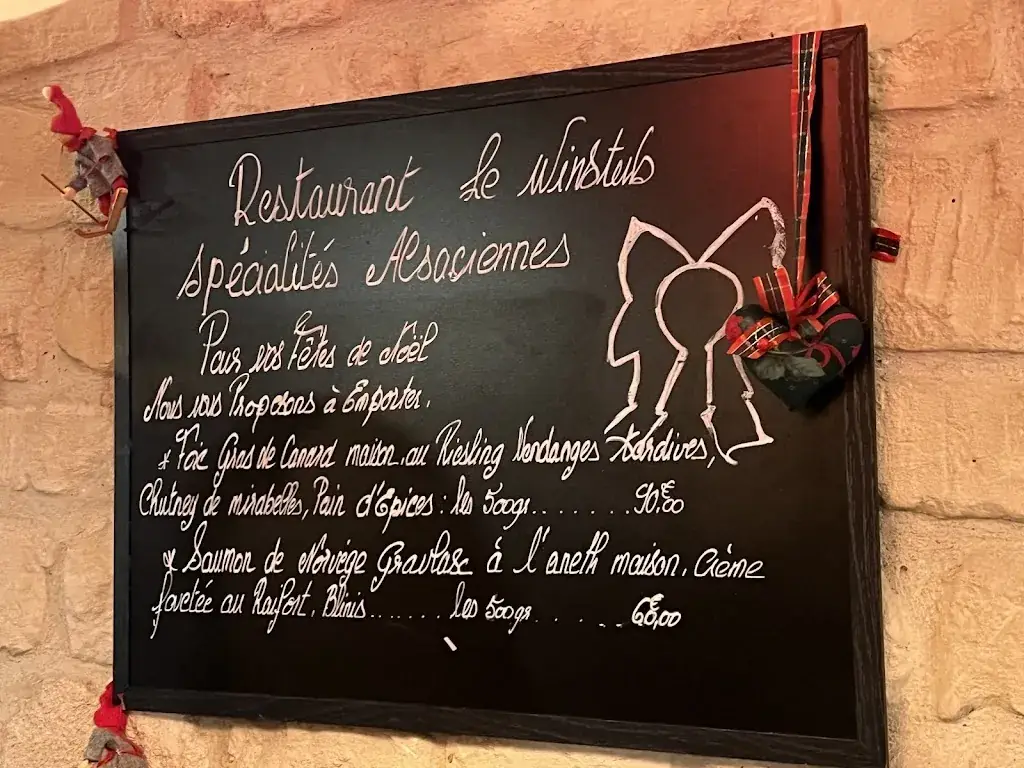 Restaurant Le Winstub
Spécialités Alsaciennes
Pour vos Fêtes de Noël
Nous vous Proposons à Emporter.
* Foie Gras de Canard maison au Riesling Vendanges tardives,
Chutney de mirabelles, Pain d'Epices : les 500gr.......90,€00
* Saumon de Norvège Gravlax à l'aneth maison. Crème
fouetée au Raifort. Blinis....... les 500gr. . . . .. 68,€00